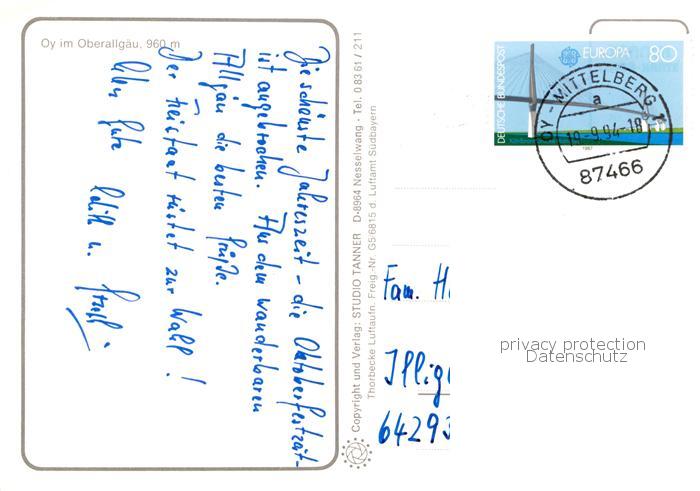 Oy im Oberallgäu, 960 m
Die schönste Jahreszeit - die Oktoberfestzeit -
ist angebrochen. Aus dem wanderbaren
Allgäu die besten Grüße.
Der Freistaat rüstet zur Wahl!
Alles Gute
u.
Copyright und Verlag: STUDIO TANNER D-8964 Nesselwang · Tel. 0 83 61 / 211
Thorbecke Luftaufn. Freig.-Nr. G5/6815 d. Luftamt Südbayern
DEUTSCHE BUNDESPOST
EUROPA 80
1987
OY-MITTELBERG 1
a
19.-9.94-18
87466
Fam. H
Illig
64293
privacy protection
Datenschutz